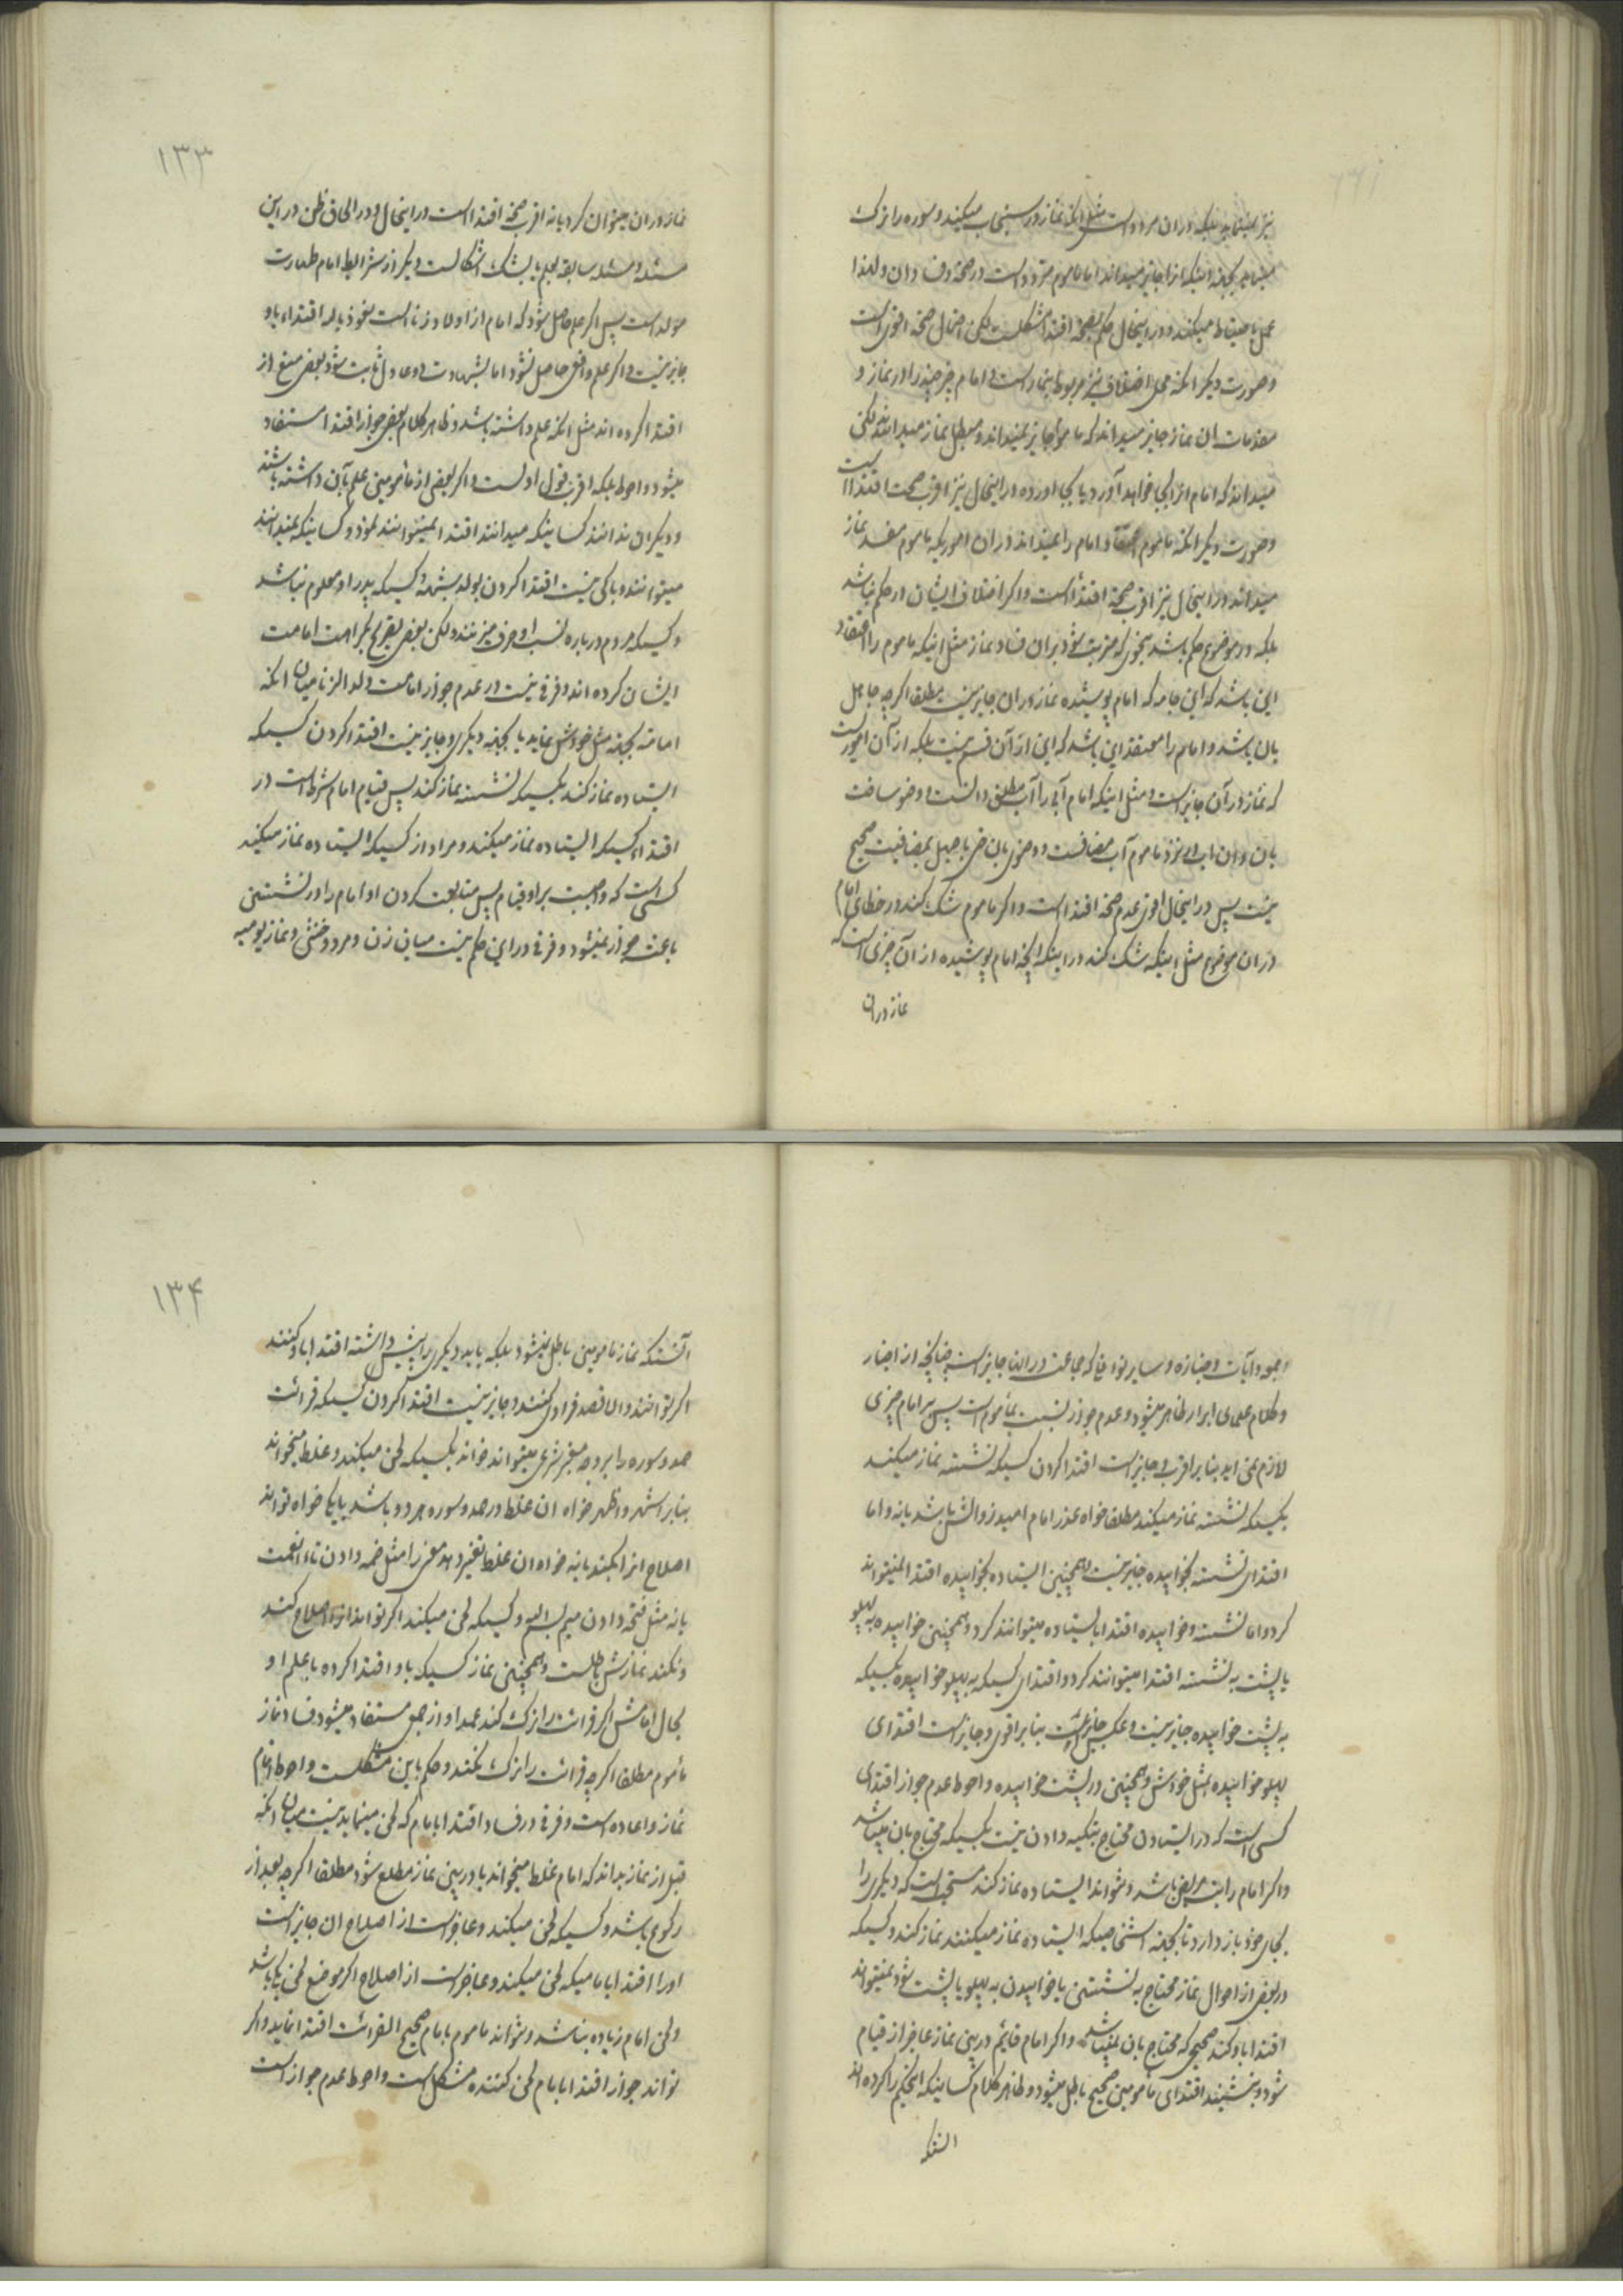 نیز نمینماید بلکه در ان مردد است مثل انکه نماز در سنجاب میکند و سوره را ترک
مینماید بجهة اینکه انرا جایز میداند اما ماموم متردد است در صحة و فساد ان و لهذا
عمل باحتیاط میکند و در اینحال حکم بصحة اقتدا مشکلست لکن احتمال صحة اقوی است
و صورت دیکر انکه محل اختلاف نیز مربوط بنماز است و امام چیزچند را در نماز و
مقدمات ان نماز جایز میداند که ماموم جایز نمیداند و مبطل نماز میداند لکن
میداند که امام انرا بجا نخواهد آورد یا بجا نیاورده در اینحال نیز اقرب صحت اقتدا است
و صورت دیکر انکه ماموم اعتقاد امام را نمیداند در ان اموریکه ماموم مفسد نماز
میداند در اینحال نیز اقرب صحة اقتدا است و اکر اختلاف ایشان در حکم نباشد
بلکه در موضوع حکم باشد بنحوی که مترتب شود بر ان فساد نماز مثل اینکه ماموم را اعتقاد
این باشد که این جامه که امام پوشیده نماز در ان جایز نیست مطلقا اکرچه جاهل
بان باشد و امام را معتقد این باشد که این از آن قسم نیست بلکه از آن امور است
که نماز در آن جایز است و مثل اینکه امام آبی را آب مطلق دانست و وضو ساخت
بان و ان اب نزد ماموم آب مضافست و وضوی بان حتی با جهل بمضافیت صحیح
نیست پس در اینحال اقوی عدم صحة اقتدا است و اکر ماموم شک کند در خطای امام
در ان موضوع مثل اینکه شک کند در اینکه انچه امام پوشیده از ان چیزی است که
نماز در ان
١٣٣
نماز در ان میتوان کرد یا نه اقرب صحة اقتدا است در اینحال و در الحاق ظن در این
مسئله و مسئله سابقه بعلم یا بشک اشکالست و دیکر از شرایط امام طهارت
مولد است پس اکر علم حاصل شود که امام از اولاد زنا است نعوذ بالله اقتداء باو
جایز نیست و اکر علم واقعی حاصل نشود اما بشهادت دو عادل ثابت شود بعضی منع از
اقتدا کرده اند مثل انکه علم داشته باشد و ظاهر کلام بعضی جواز اقتدا استفاد
میشود و احوط بلکه اقرب قول اولست و اکر بعضی از مأمومین علم بآن داشته باشند
و دیکران ندانند کسانیکه میدانند اقتدا نمیتوانند نمود و کسانیکه نمیدانند
میتوانند و باکی نیست اقتدا کردن بولد شبهه و کسیکه پدر او معلوم نباشد
و کسیکه مردم درباره نسب او حرف میزنند و لکن بعضی تصریح بکراهت امامت
ایشان کرده اند و فرقی نیست در عدم جواز امامت ولد الزنا میان انکه
امامة بجهة مثل خودش نماید یا بجهة دیکری و جایز نیست اقتدا کردن کسیکه
ایستاده نماز کند بکسیکه نشسته نماز کند پس قیام امام شرط است در
اقتداء کسیکه ایستاده نماز میکند و مراد از کسیکه ایستاده نماز میکند
کسی است که واجبست بر او قیام پس متابعت کردن او امام را در نشستن
باعث جواز نمیشود و فرقی در این حکم نیست میان زن و مرد و خنثی و نماز یومیه
و عید و آیات و جنازه و سایر نوافلی که جماعت در انها جایز است چنانچه از اخبار
و کلام علمای ابرار ظاهر میشود و عدم جواز نسبت بمأموم است پس بر امام چیزی
لازم نمی اید بنابر اقرب و جایز است اقتدا کردن کسیکه نشسته نماز میکند
بکسیکه نشسته نماز میکند مطلقا خواه عذر امام امید زوالش باشد یا نه و اما
اقتدای نشسته بخوابیده جایز نیست و همچنین ایستاده بخوابیده اقتدا نمیتواند
کرد و اما نشسته و خوابیده اقتدا بایستاده میتوانند کرد و همچنین خوابیده به پهلو
یا پشت به نشسته اقتدا میتوانند کرد و اقتدای کسیکه به پهلو خوابیده بکسیکه
به پشت خوابیده جایز نیست و عکس جایز است بنابر اقوی و جایز است اقتدای
پهلو خوابیده بمثل خودش و همچنین در پشت خوابیده و احوط عدم جواز اقتدای
کسی است که در ایستادن محتاج بتکیه دادن نیست بکسیکه محتاج بان میباشد
و اکر امام راتب مریض باشد و نتواند ایستاده نماز کند مستحب است که دیکری را
بجای خود باز دارد تا بجهة اشخاصیکه ایستاده نماز میکنند نماز کند و کسیکه
در بعضی از احوال نماز محتاج به نشستن یا خوابیدن به پهلو یا پشت شود نمیتواند
اقتدا باو کند صحیحی که محتاج بان نمیباشد و اکر امام قائم در بین نماز عاجز از قیام
شود و بنشیند اقتدای مأمومین صحیح باطل میشود و ظاهر کلام کسانیکه اینحکم را کرده اند
انستکه
١٣۴
آنستکه نماز مامومین باطل نمیشود بلکه باید دیکری را پیش داشته اقتدا باو کنند
اکر توانند و الا قصد فرادی کنند و جایز نیست اقتدا کردن کسیکه قرائت
حمد و سوره را بر وجه معتبر شرعی میتواند خواند بکسیکه لحن میکند و غلط میخواند
بنابر اشهر و اظهر خواه ان غلط در حمد و سوره هر دو باشد یا یکی خواه تواند
اصلاح انرا بکند یا نه خواه ان غلط تغییر دهد معنی را مثل ضمه دادن تاء انعمت
یا نه مثل فتحه دادن میم بسم الله و کسیکه لحن میکند اکر تواند انرا اصلاح کند
و نکند نمازش باطلست و همچنین نماز کسیکه باو اقتدا کرده با علم او
بحال امامش اکر قرائت را ترک کند عمدا و از جمعی مستفاد میشود فساد نماز
مأموم مطلقا اکرچه قرائت را ترک نکند و حکم باین مشکلست و احوط اتمام
نماز و اعاده است و فرقی در فساد اقتدا بامام که لحن مینماید نیست میان انکه
قبل از نماز بداند که امام غلط میخواند یا در بین نماز مطلع شود مطلقا اکرچه بعد از
رکوع باشد و کسیکه لحن میکند و عاجز است از اصلاح ان جایز است
او را اقتدا بامامیکه لحن میکند و عاجز است از اصلاح اکر موضع لحن یکی باشد
و لحن امام زیاده نباشد و نتواند ماموم بامام صحیح القرائت اقتدا نماید و اکر
تواند جواز اقتدا بامام لحن کننده مشکل است و احوط عدم جواز است